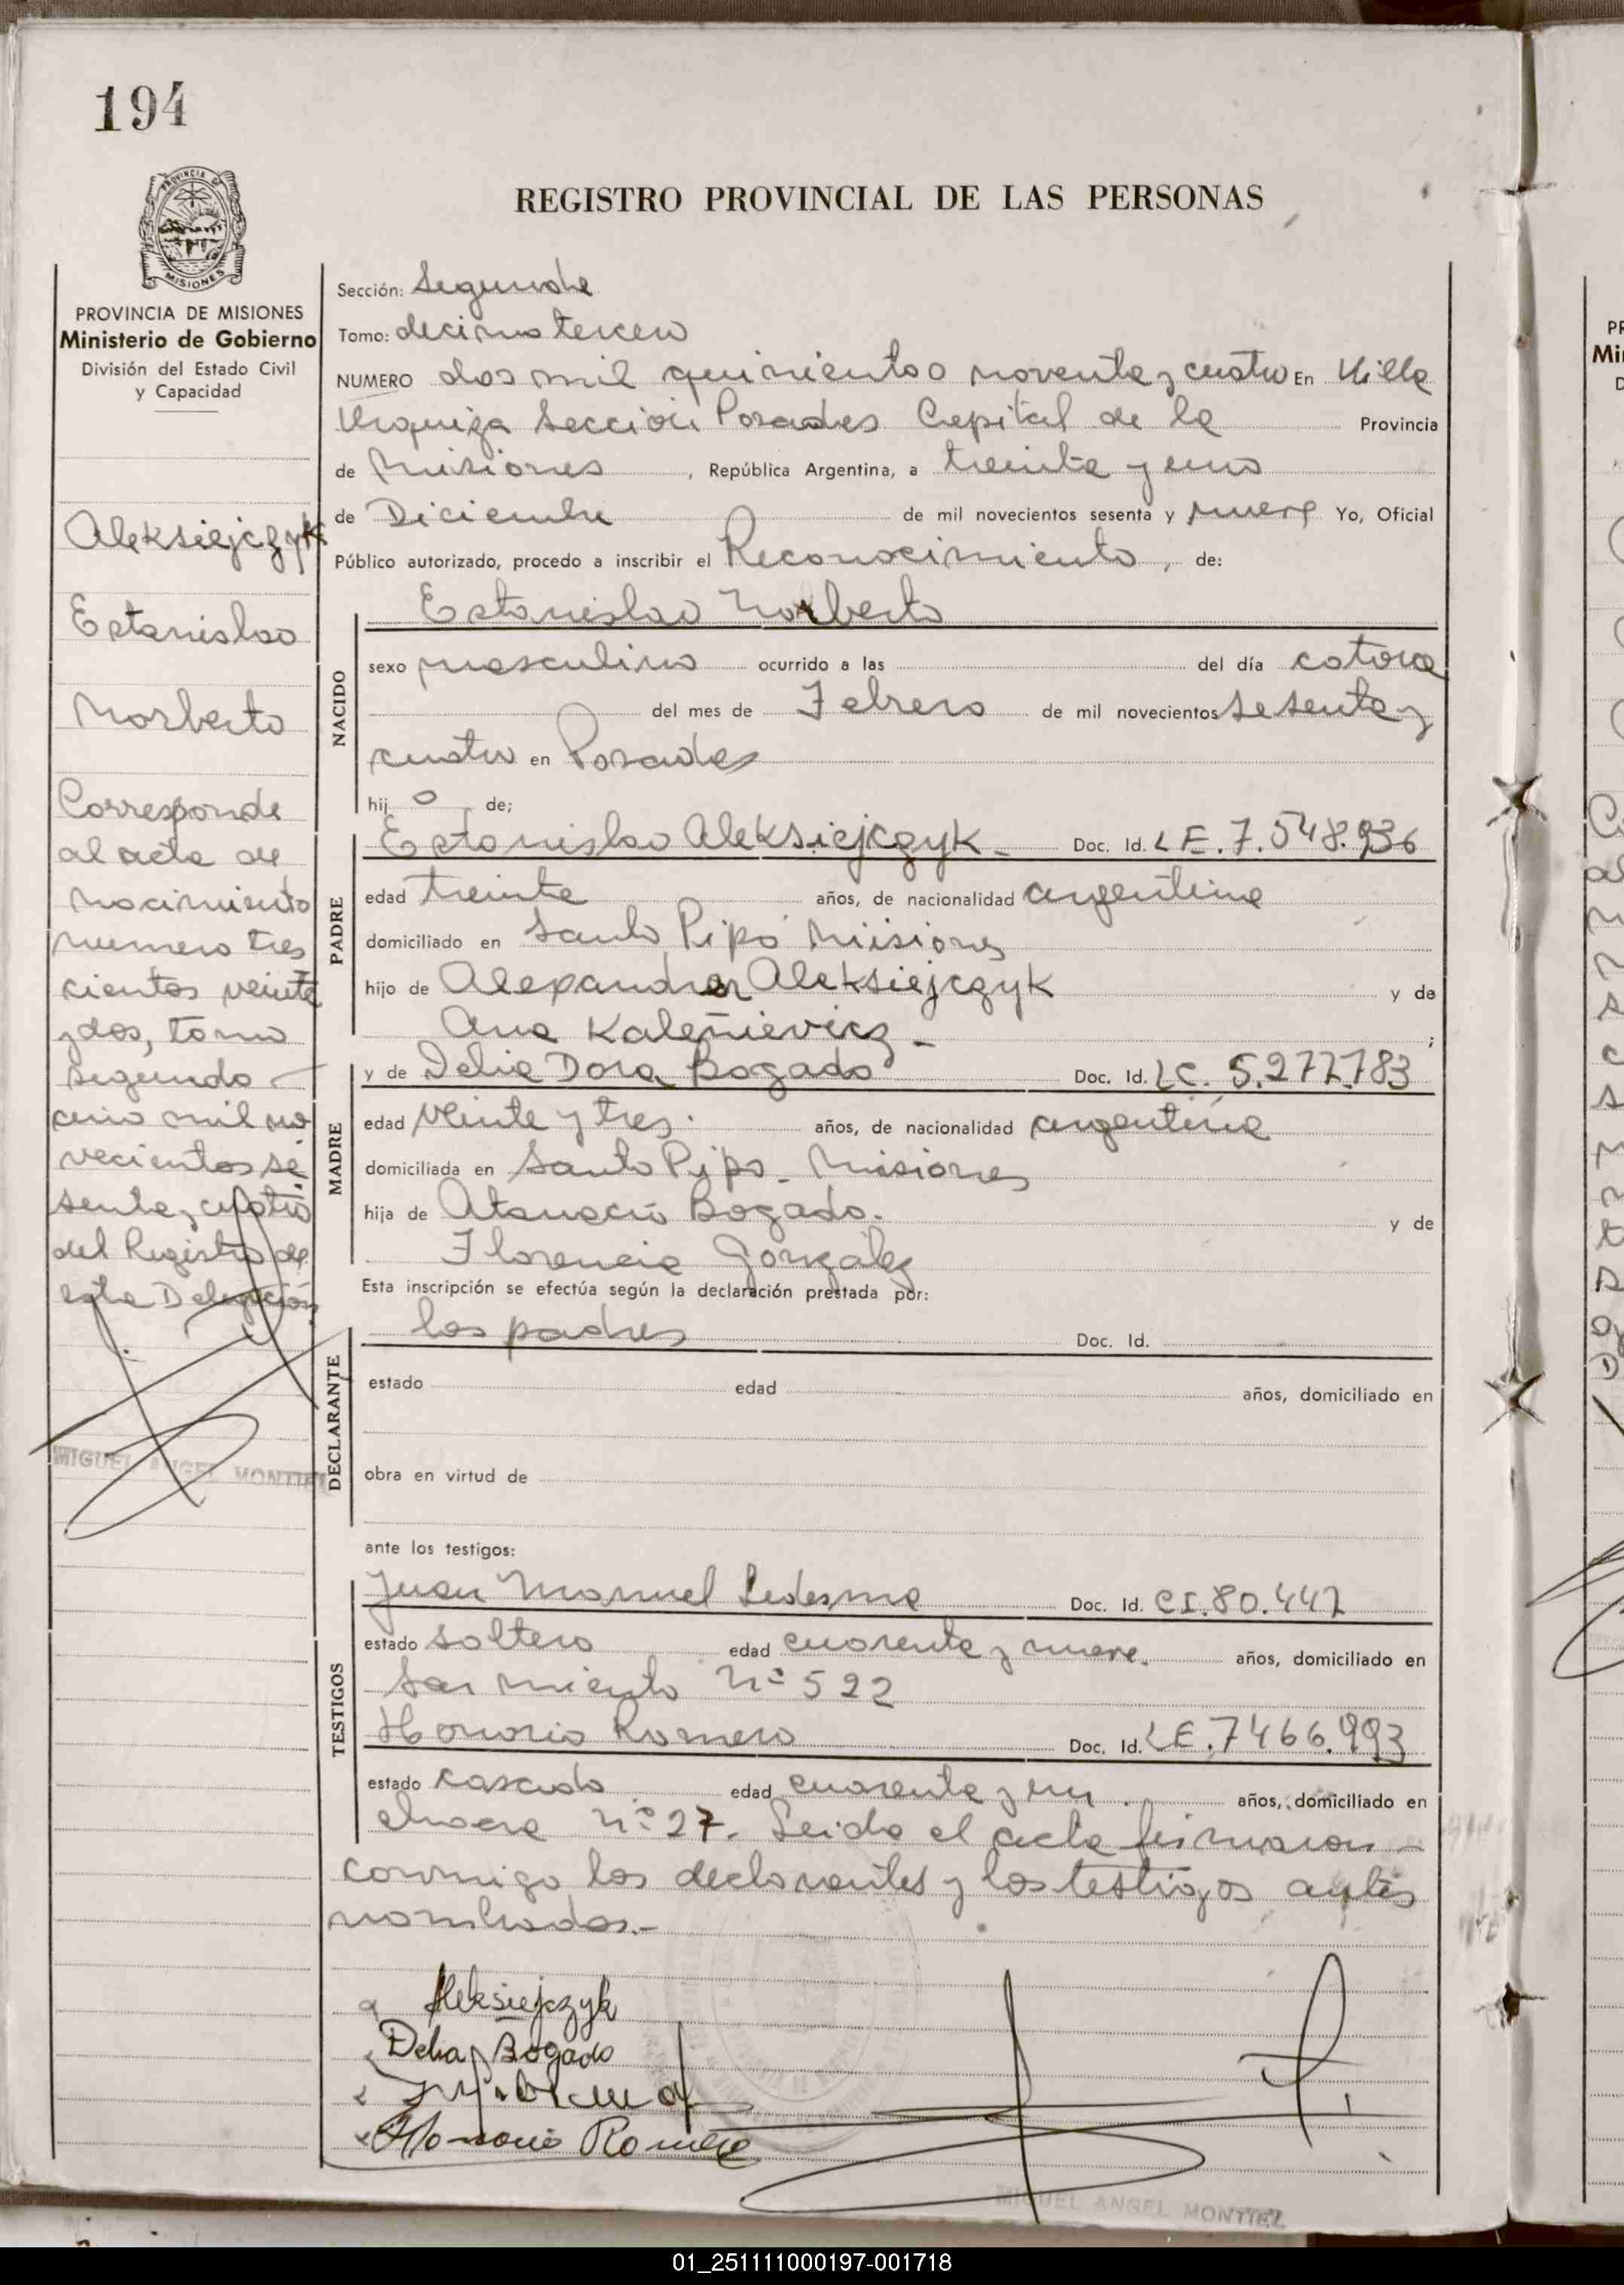 194
REGISTRO PROVINCIAL DE LAS PERSONAS
PROVINCIA DE MISIONES
Ministerio de Gobierno
División del Estado Civil
y Capacidad
Aleksiejczyk
Estanislao
Norberto
Corresponde
al acta de
nacimiento
numero tres
cientos veinte
y dos, tomo
segundo
año mil no
vecientos se
senta y cuatro
del Registro de
esta Delegación
MIGUEL ANGEL MONTIEL
Sección: Segunda
Tomo: decimo tercero
NUMERO dos mil quinientos noventa y cuatro En Villa
Urquiza Sección Posadas Capital de la Provincia
de Misiones, República Argentina, a treinta y uno
de Diciembre de mil novecientos sesenta y nueve Yo, Oficial
Público autorizado, procedo a inscribir el Reconocimiento, de:
Estanislao Norberto
NACIDO
sexo masculino ocurrido a las del día catorce
del mes de Febrero de mil novecientos sesenta y
cuatro en Posadas
hij o de;
PADRE
Estanislao Aleksiejczyk - Doc. Id. LE. 7.548.936
edad treinta años, de nacionalidad argentina
domiciliado en Santo Pipó Misiones
hijo de Alexander Aleksiejczyk y de
Ana Kaleñievicz - ;
MADRE
y de Delia Dora Bogado Doc. Id. LC. 5.277.783
edad veinte y tres. años, de nacionalidad argentina
domiciliada en Santo Pipo - Misiones
hija de Atanacio Bogado. y de
Florencia Gonzalez
Esta inscripción se efectúa según la declaración prestada por:
DECLARANTE
los padres Doc. Id.
estado edad años, domiciliado en
obra en virtud de
ante los testigos:
TESTIGOS
Juan Manuel Ledesma Doc. Id. CI. 80.442
estado soltero edad cuarenta y nueve. años, domiciliado en
Sarmiento Nº 522
Honorio Romero Doc. Id. LE. 7466.993
estado casado edad cuarenta y un. años, domiciliado en
chacra Nº 27. Leida el acta firmaron -
conmigo los declarantes y los testigos antes
nombrados.-
Aleksiejczyk
Delia Bogado
Honorio Romero
MIGUEL ANGEL MONTIEL
01_251111000197-001718